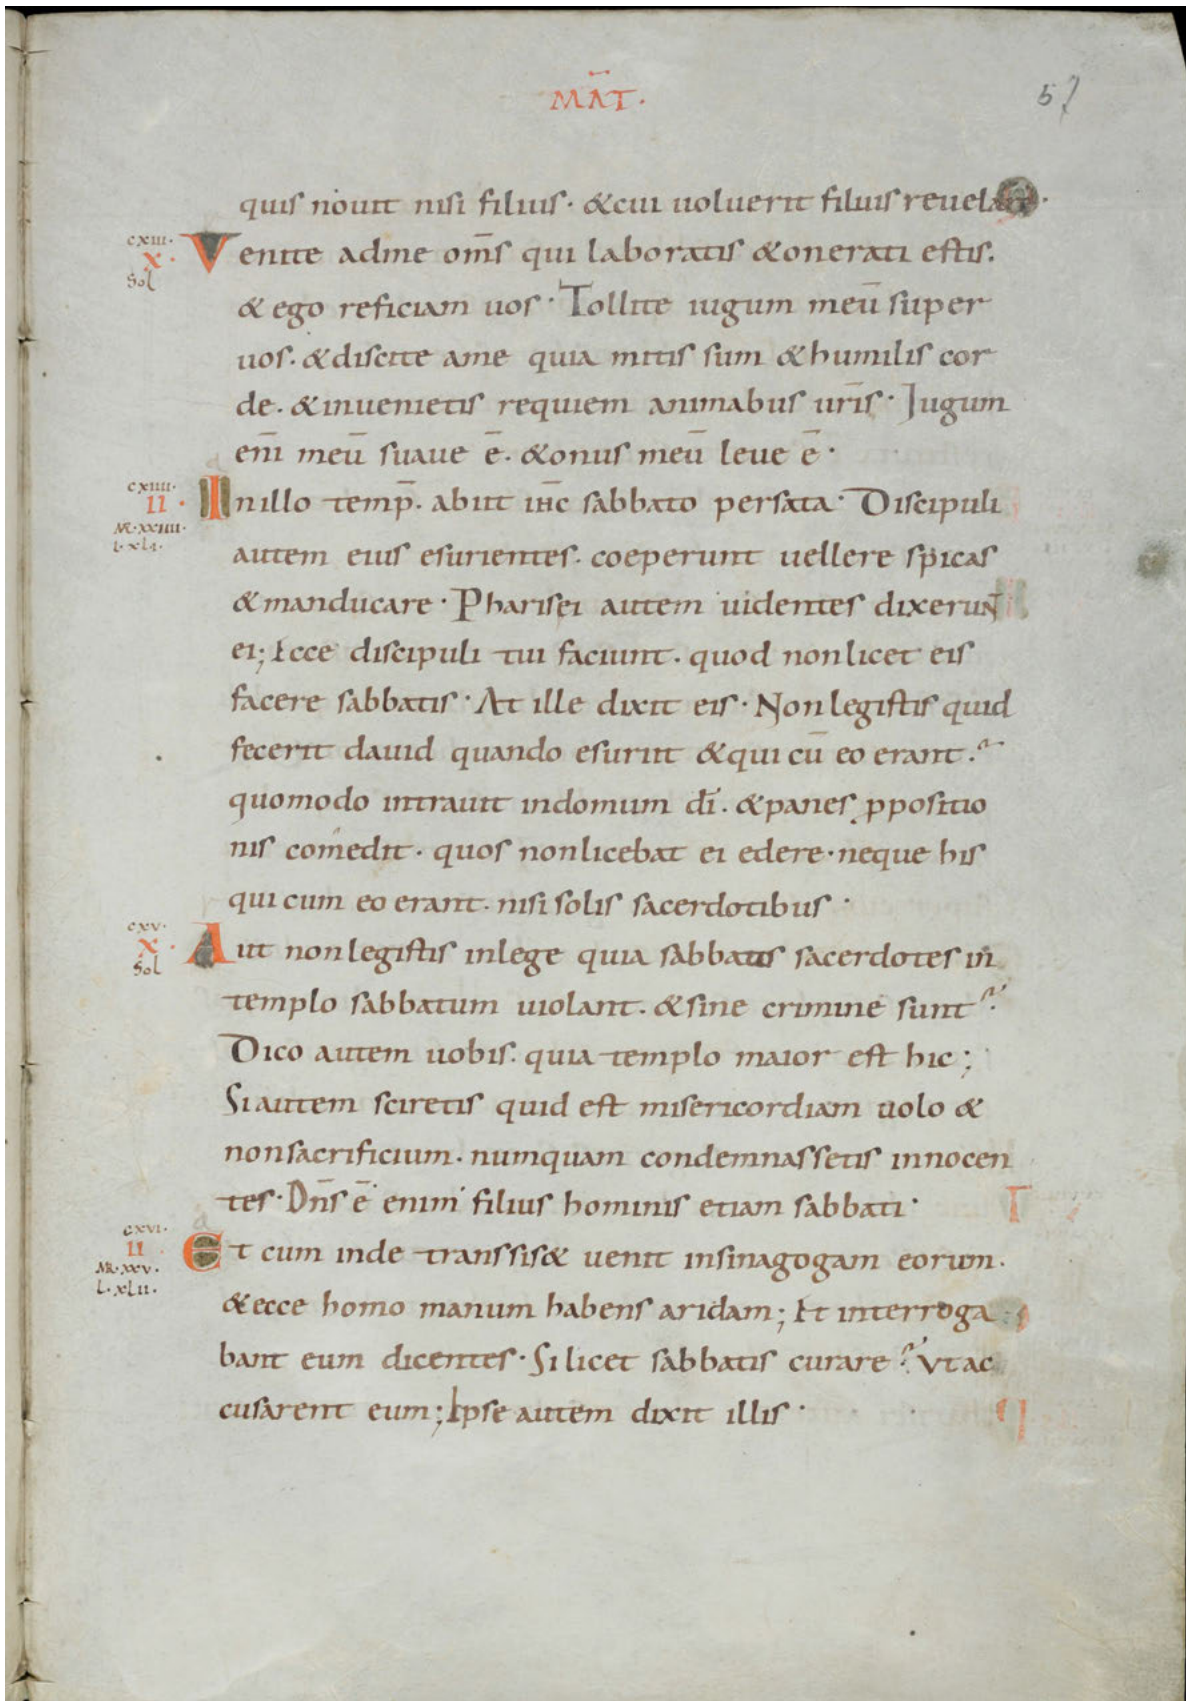 MAT̄.
57
quis nouit nisi filius· &cui uoluerit filius reuelare·
cxiii·
x·
Sol
Venite adme om̄s qui laboratis &onerati estis.
& ego reficiam uos· Tollite iugum meū super
uos. &discite ame quia mitis sum &humilis cor
de. &inuenietis requiem animabus ur̄is· Jugum
eni̅ meū suaue ē. &onus meū leue ē·
cxiiii·
II·
MR·xxiiii·
L·xli·
In illo temp̄. abiit ih̄c sabbato persata· Discipuli
autem eius esurientes. coeperunt uellere spicas
&manducare· Pharisei autem uidentes dixerunt
ei; Ecce discipuli tui faciunt. quod nonlicet eis
facere sabbatis· At ille dixit eis· Non legistis quid
fecerit dauid quando esuriit &qui cū eo erant?
quomodo intrauit indomum dī. &panes ꝓpositio
nis comedit. quos nonlicebat ei edere· neque his
qui cum eo erant. nisi solis sacerdotibus·
cxv·
x·
Sol
Aut non legistis inlege quia sabbatis sacerdotes in
templo sabbatum uiolant. &sine crimine sunt?
Dico autem uobis. quia templo maior est hic;
Si autem sciretis quid est misericordiam uolo &
nonsacrificium. numquam condemnassetis innocen
tes· Dn̄s ē enim filius hominis etiam sabbati·
cxvi·
II·
MR·xxv·
L·xlii·
Et cum inde transsis& uenit insinagogam eorum.
&ecce homo manum habens aridam; Et interroga
bant eum dicentes· Si licet sabbatis curare? Vt ac
cusarent eum; Ipse autem dixit illis·